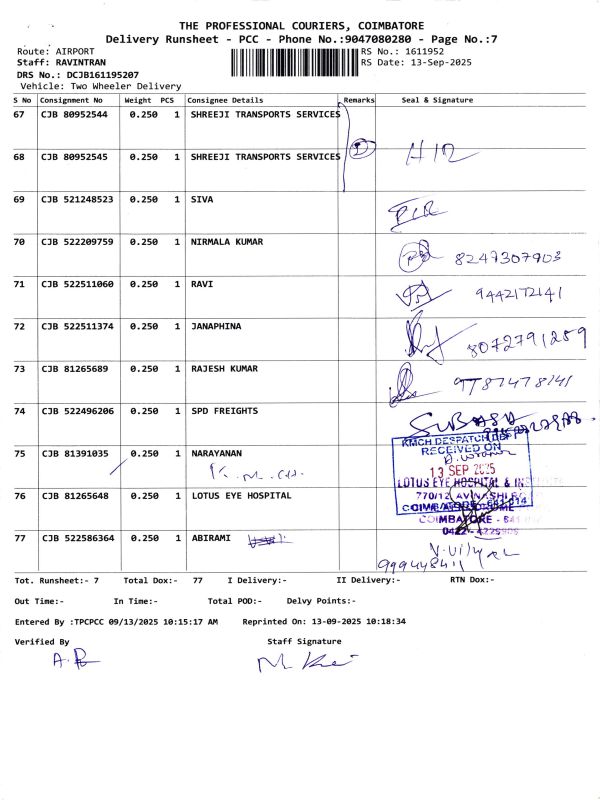 THE PROFESSIONAL COURIERS, COIMBATORE
Delivery Runsheet - PCC - Phone No.:9047080280 - Page No.:7
Route: AIRPORT
RS No.: 1611952
Staff: RAVINTRAN
RS Date: 13-Sep-2025
DRS No.: DCJB161195207
Vehicle: Two Wheeler Delivery
S No Consignment No Weight PCS Consignee Details Remarks Seal & Signature
67 CJB 80952544 0.250 1 SHREEJI TRANSPORTS SERVICES
68 CJB 80952545 0.250 1 SHREEJI TRANSPORTS SERVICES
69 CJB 521248523 0.250 1 SIVA
70 CJB 522209759 0.250 1 NIRMALA KUMAR
8247307903
71 CJB 522511060 0.250 1 RAVI
9442172141
72 CJB 522511374 0.250 1 JANAPHINA
8072791259
73 CJB 81265689 0.250 1 RAJESH KUMAR
9787478141
74 CJB 522496206 0.250 1 SPD FREIGHTS
KMCH DESPATCH DEPT
RECEIVED ON
75 CJB 81391035 0.250 1 NARAYANAN
13 SEP 2025
LOTUS EYE HOSPITAL &
76 CJB 81265648 0.250 1 LOTUS EYE HOSPITAL
770/12 AVINASHI
COIMBATORE - 641 014
COIMBATORE - 641
0422 - 4229909
77 CJB 522586364 0.250 1 ABIRAMI
Tot. Runsheet:- 7 Total Dox:- 77 I Delivery:- II Delivery:- RTN Dox:-
Out Time:- In Time:- Total POD:- Delvy Points:-
Entered By :TPCPCC 09/13/2025 10:15:17 AM Reprinted On: 13-09-2025 10:18:34
Verified By Staff Signature